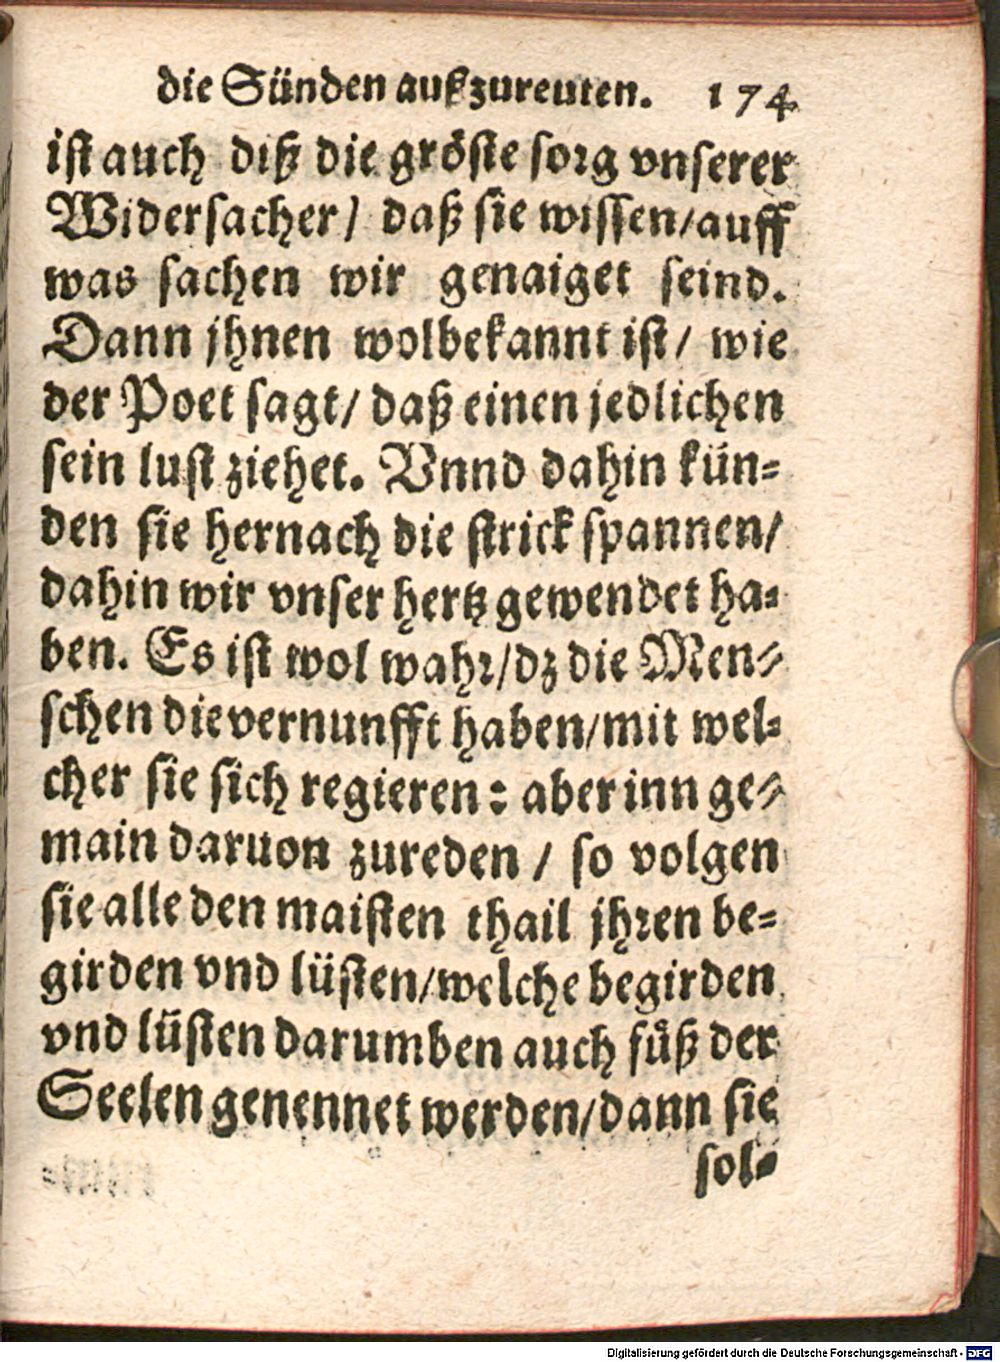 die Sünden außzureuten. 174
ist auch diß die gröste sorg vnserer
Widersacher / daß sie wissen / auff
was sachen wir genaiget seind.
Dann jhnen wolbekannt ist / wie
der Poet sagt / daß einen jedlichen
sein lust ziehet. Vnnd dahin kün=
den sie hernach die strick spannen /
dahin wir vnser hertz gewendet ha=
ben. Es ist wol wahr / dz die Men=
schen die vernunfft haben / mit wel=
cher sie sich regieren: aber inn ge=
main daruon zureden / so volgen
sie alle den maisten thail jhren be=
girden vnd lüsten / welche begirden
vnd lüsten darumben auch füß der
Seelen genennet werden / dann sie
sol=
Digitalisierung gefördert durch die Deutsche Forschungsgemeinschaft - DFG